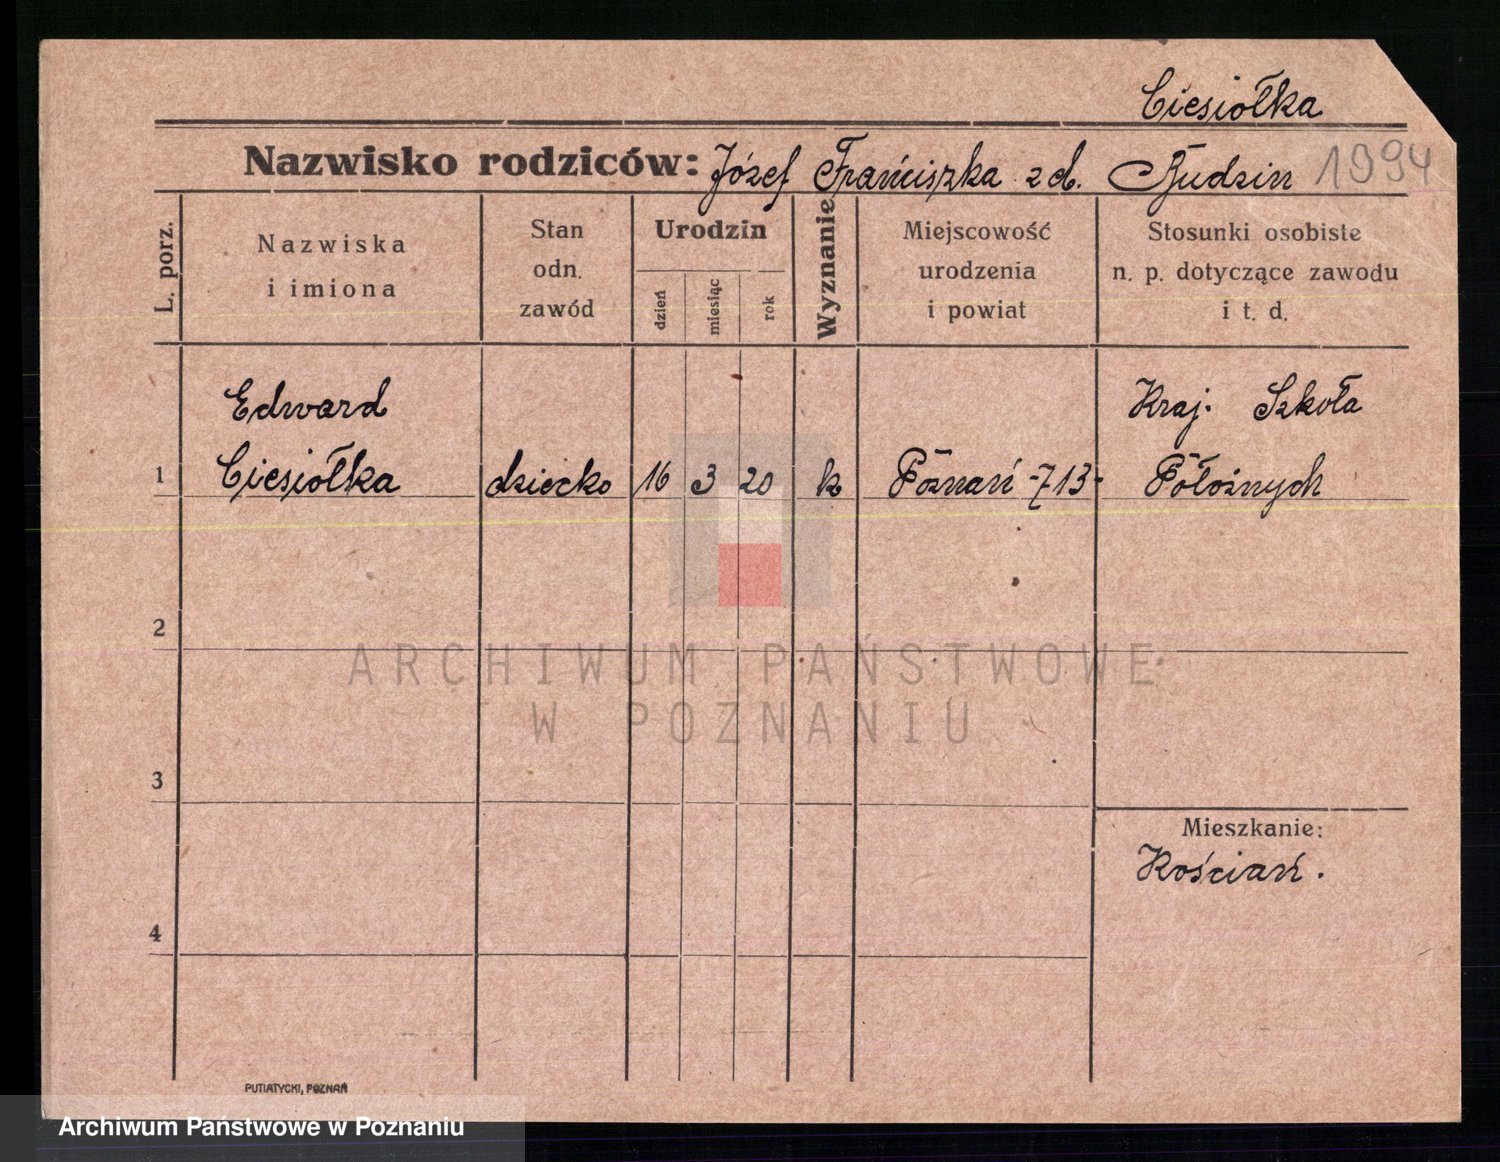 Ciesiołka
Nazwisko rodziców: Józef Franciszka zd. Rudzin 1994
L. porz.
Nazwiska
i imiona
Stan
odn.
zawód
Urodzin
dzień
miesiąc
rok
Wyznanie
Miejscowość
urodzenia
i powiat
Stosunki osobiste
n. p. dotyczące zawodu
i t. d.
Edward
Kraj. Szkoła
1 Ciesiołka dziecko 16 3 20 k Poznań -713- Położnych
2
ARCHIWUM PAŃSTWOWE
W POZNANIU
3
Mieszkanie:
Kościań.
4
PUTIATYCKI, POZNAŃ
Archiwum Państwowe w Poznaniu